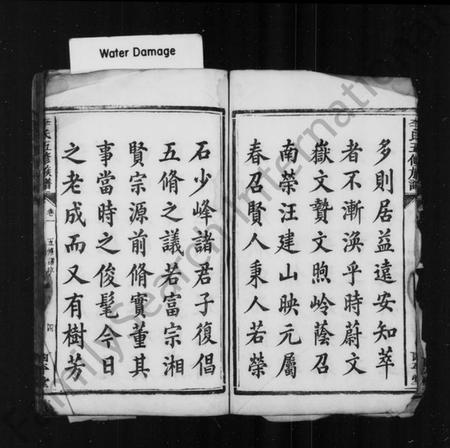 Water Damage
多則居益遠安知萃
者不漸渙乎時蔚文
嶽文贊文煦岭蔭召
南榮汪建山映元屬
春召賢人秉人若榮
石少峰諸君子復倡
五脩之議若富宗湘
賢宗源前脩實董其
事當時之俊髦今日
之老成而又有樹芳
李氏五修族譜
卷一
FamilySearch International